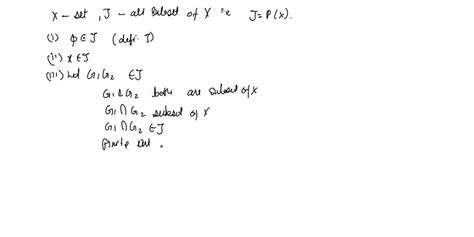 X - set , J - all subset of X i.e J = P(X).
(i) φ ∈ J (defi. J)
(ii) X ∈ J
(iii) Let G₁ G₂ ∈ J
G₁ & G₂ both are subset of X
G₁ ∩ G₂ subset of X
G₁ ∩ G₂ ∈ J